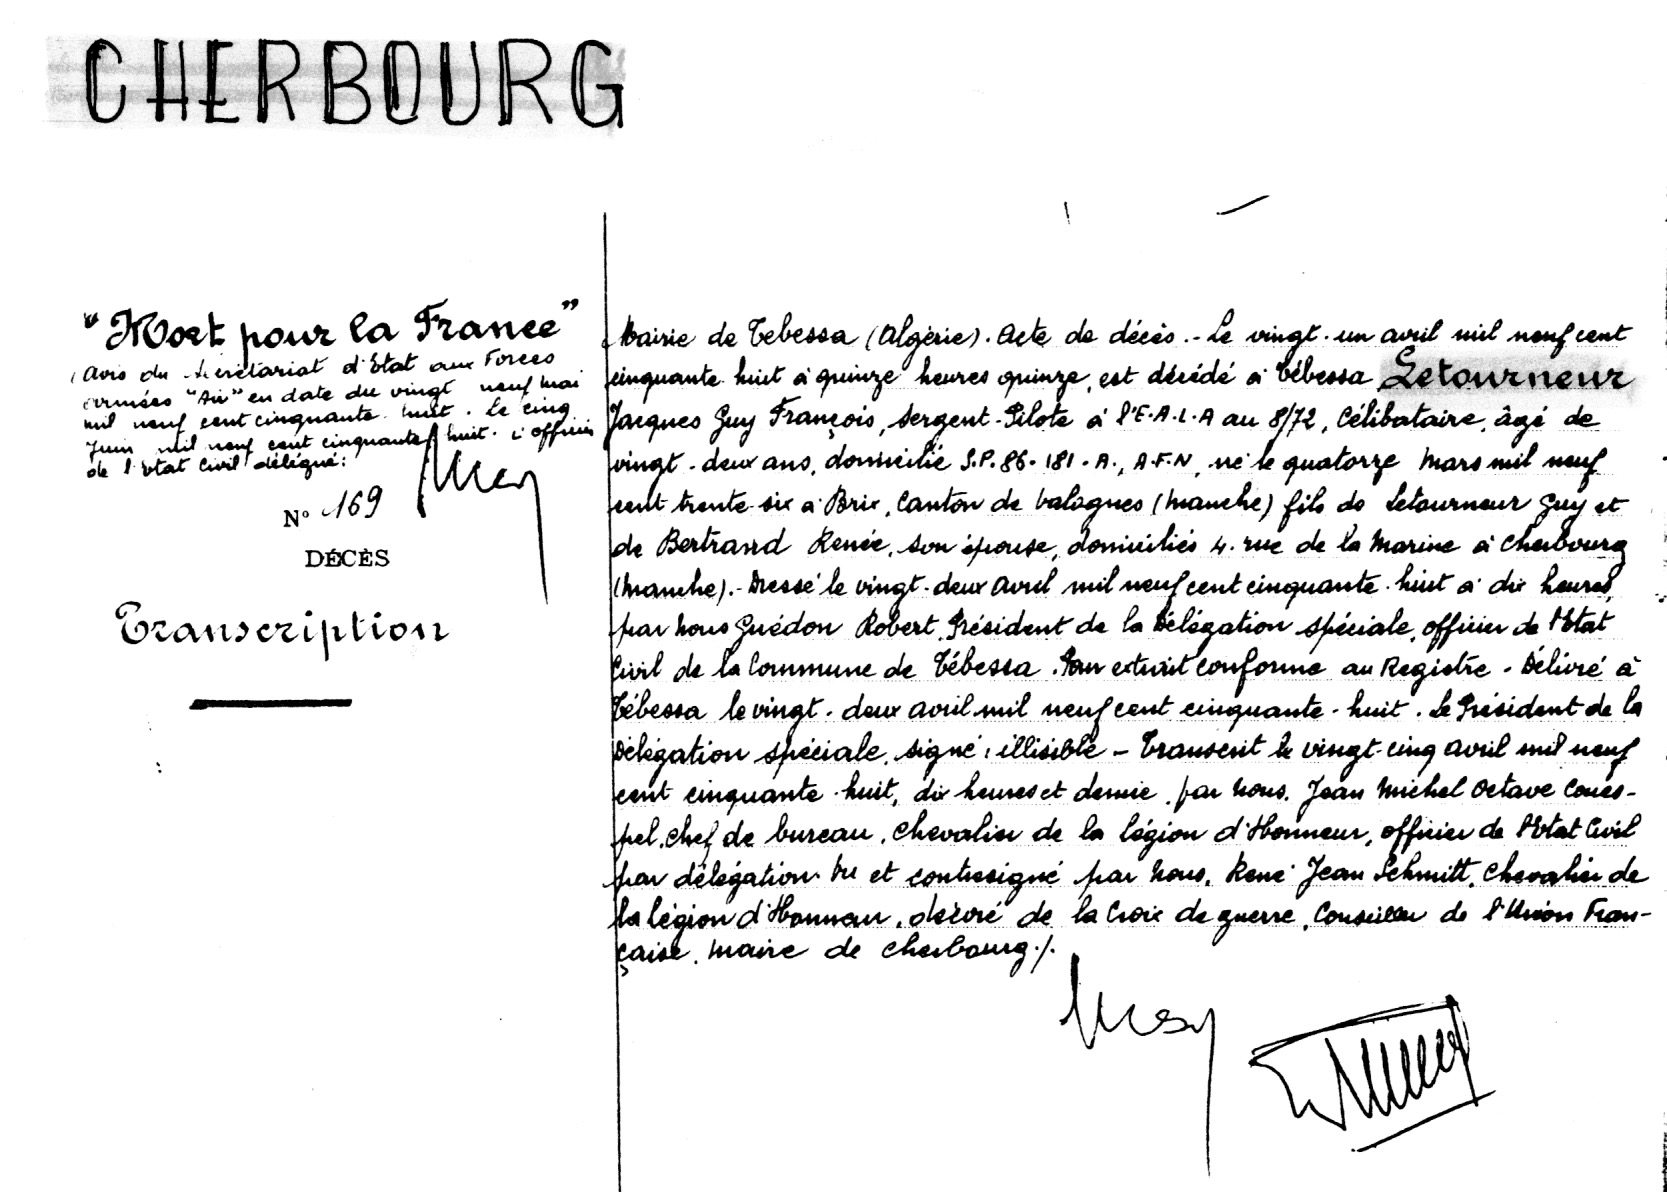 CHERBOURG
"Mort pour la France"
Avis du Secrétariat d'Etat aux Forces
armées "Air" en date du vingt neuf mai
mil neuf cent cinquante huit. Le cinq
Juin mil neuf cent cinquante huit. L'officier
de l'Etat Civil délégué:
N° 169
DÉCÈS
Transcription
Mairie de Tebessa (Algérie). Acte de décès.- Le vingt-un avril mil neuf cent
cinquante huit à quinze heures quinze, est décédé à Tébessa Letourneur
Jacques Guy François, Sergent-Pilote à l'E.A.L.A au 8/72, Célibataire, âgé de
vingt-deux ans, domicilié S.P. 86-181-A., A.F.N, né le quatorze Mars mil neuf
cent trente-six à Brix, Canton de Valognes (Manche) fils de Letourneur Guy et
de Bertrand Renée, son épouse, domiciliés 4. rue de la Marine à Cherbourg
(Manche).- Dressé le vingt-deux Avril mil neuf cent cinquante-huit à dix heures,
par nous Guédon Robert, Président de la Délégation spéciale, officier de l'Etat
Civil de la Commune de Tébessa. Pour extrait conforme au Registre - Délivré à
Tébessa le vingt-deux avril mil neuf cent cinquante-huit. Le Président de la
Délégation spéciale, signé: illisible - Transcrit le vingt-cinq avril mil neuf
cent cinquante-huit, dix heures et demie, par nous, Jean Michel Octave Coues-
pel, Chef de bureau, Chevalier de la légion d'Honneur, officier de l'Etat Civil
par délégation. Vu et contresigné par nous, René Jean Schmitt, Chevalier de
la légion d'Honneur, décoré de la Croix de guerre, Conseiller de l'Union Fran-
çaise, Maire de Cherbourg./.